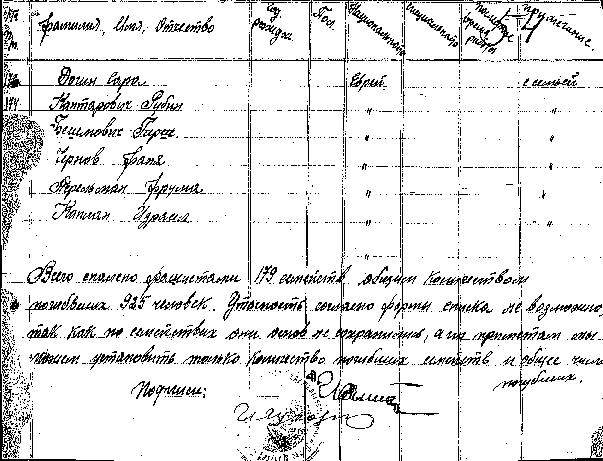 №№ п.п. Фамилия, Имя, Отчество Год рожден. Пол. Национальность Специальность примечание.
Догин Сара Еврей с семьей
174 Кантарович Рубин " "
Бешемович Гирш " "
Чернов Фаня " "
Перельман Фрума " "
Каплан Израил " "
Всего спалено фашистами 179 семейств, общим количеством
погибших 925 человек. Уточность согласно формы списка не возможно,
так как по семействах они не сохранились, а мы
можем установить только количество погибших семейств и общее число
погибших.
Подписи: